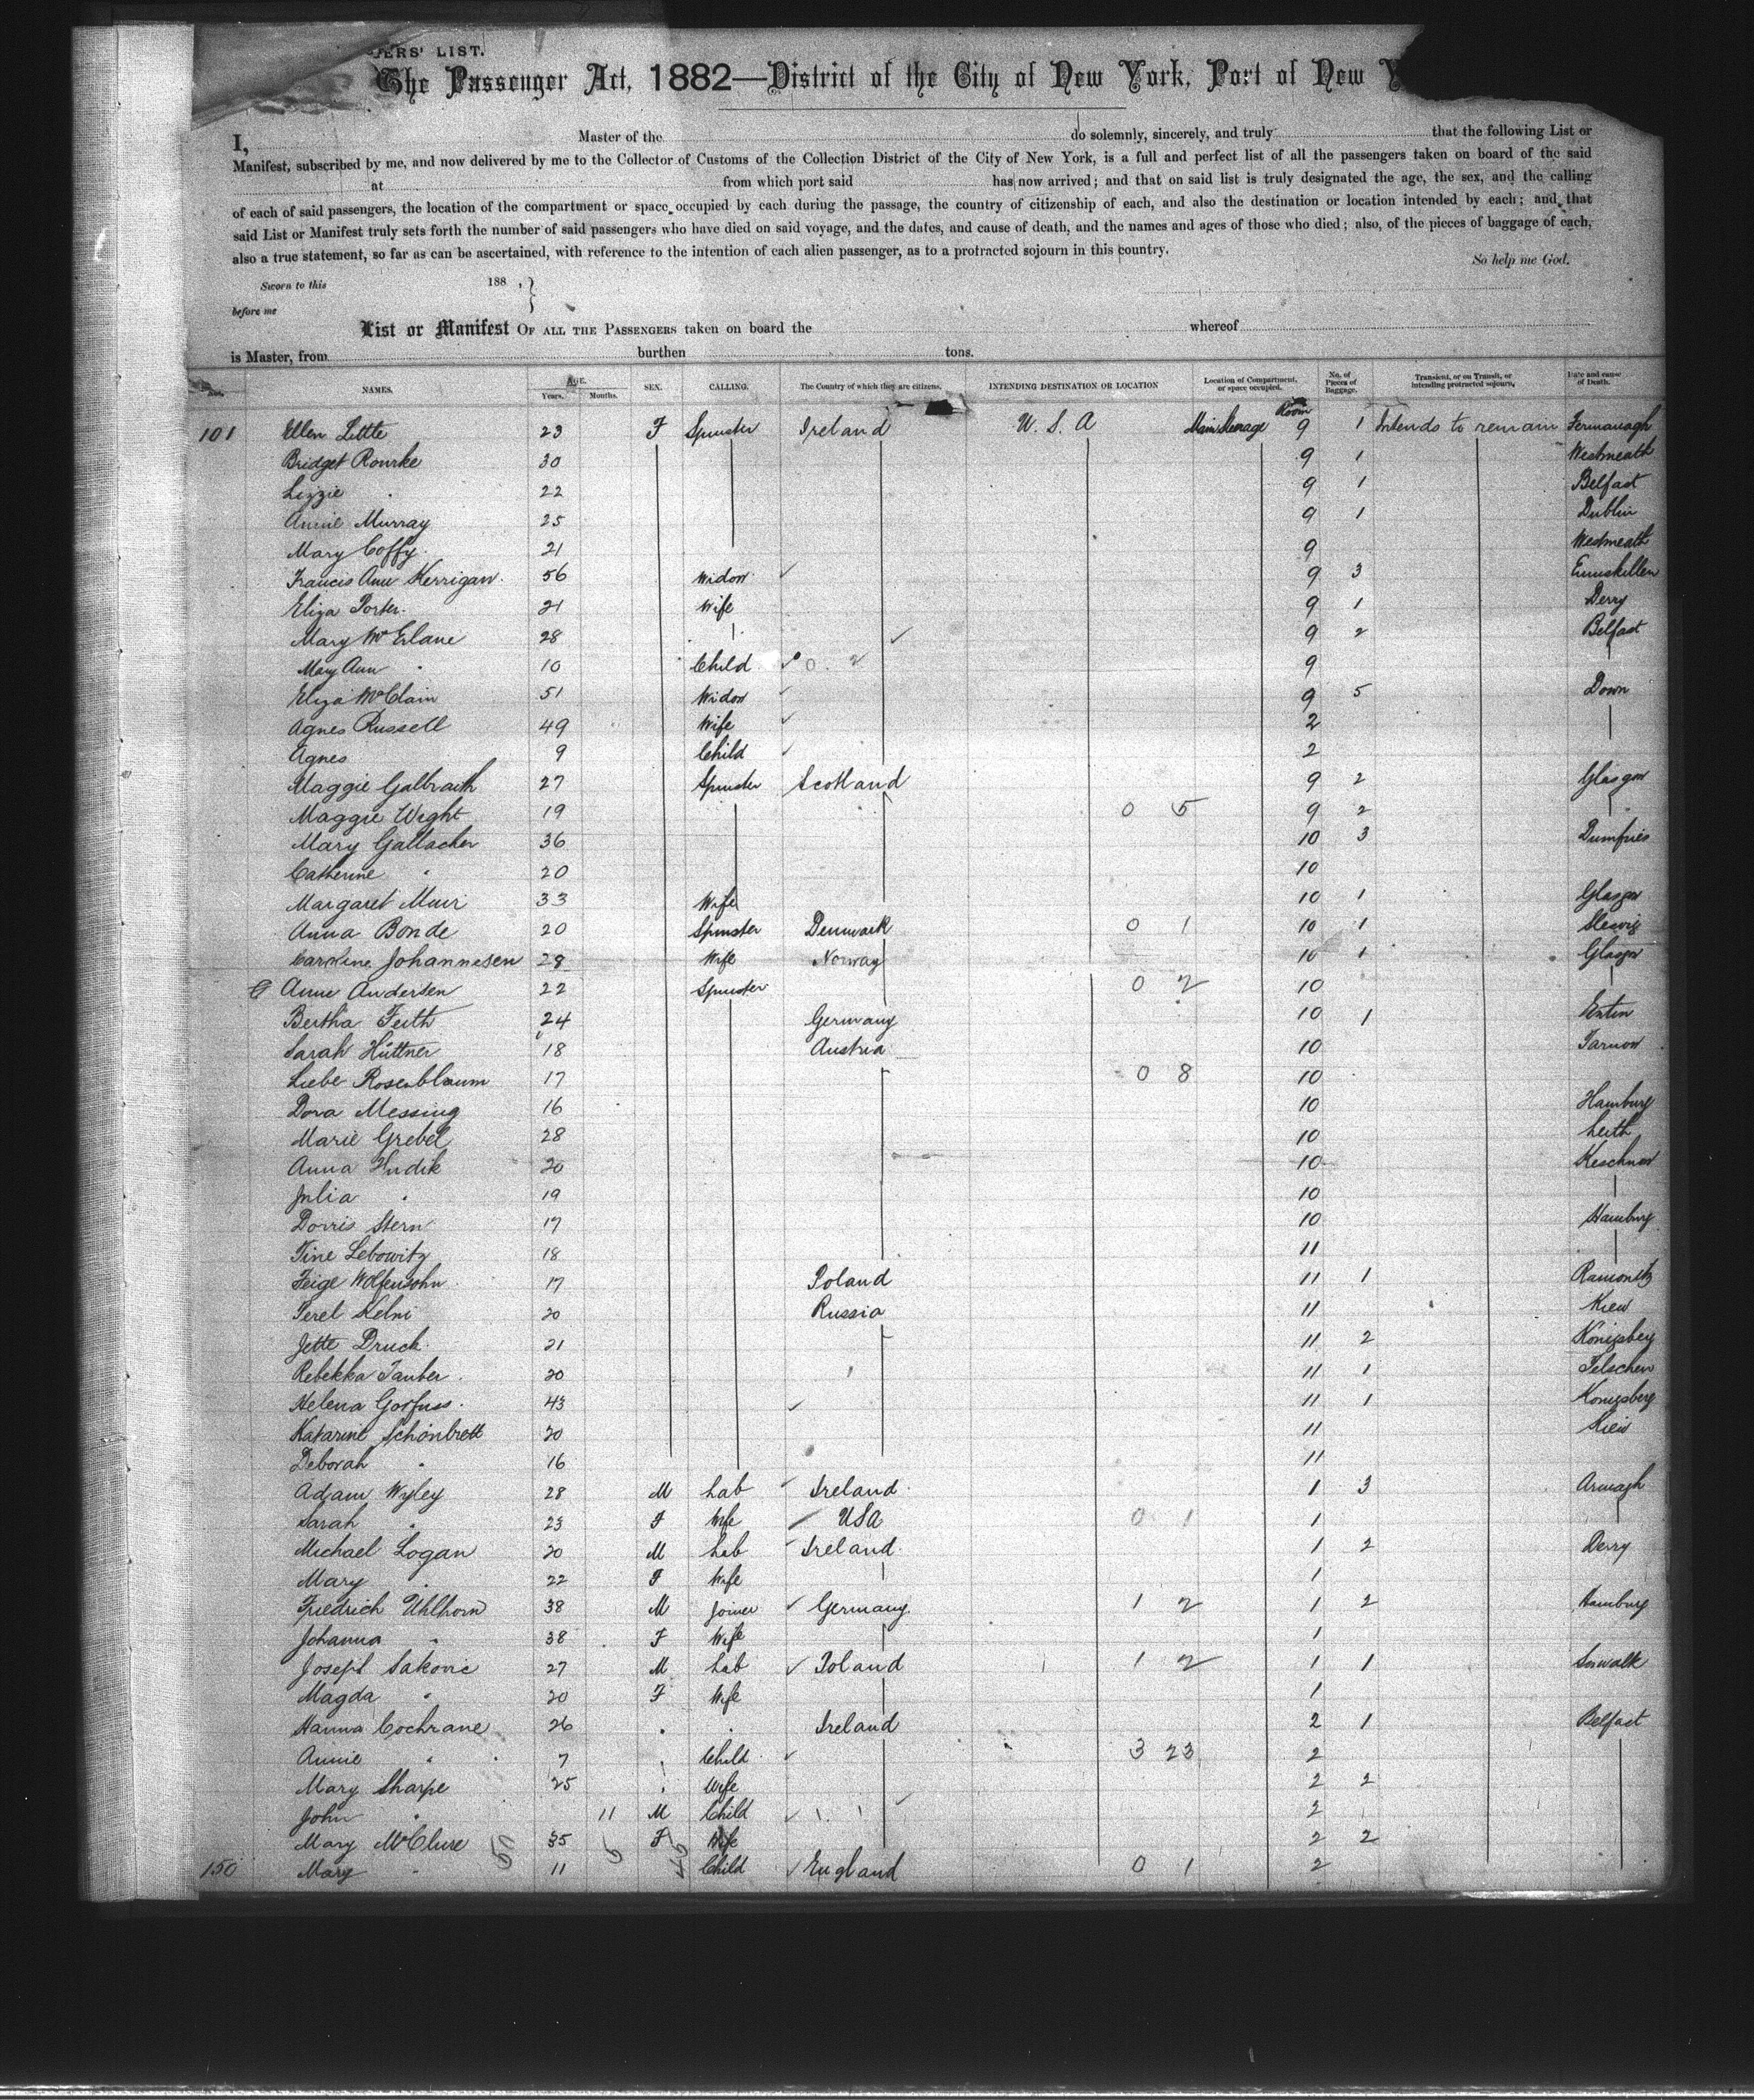 ERS' LIST.
The Passenger Act, 1882—District of the City of New York, Port of New Y
I, Master of the do solemnly, sincerely, and truly that the following List or
Manifest, subscribed by me, and now delivered by me to the Collector of Customs of the Collection District of the City of New York, is a full and perfect list of all the passengers taken on board of the said
at from which port said has now arrived; and that on said list is truly designated the age, the sex, and the calling
of each of said passengers, the location of the compartment or space occupied by each during the passage, the country of citizenship of each, and also the destination or location intended by each; and that
said List or Manifest truly sets forth the number of said passengers who have died on said voyage, and the dates, and cause of death, and the names and ages of those who died; also, of the pieces of baggage of each,
also a true statement, so far as can be ascertained, with reference to the intention of each alien passenger, as to a protracted sojourn in this country.
So help me God.
Sworn to this 188 ,
before me
List or Manifest OF ALL THE PASSENGERS taken on board the whereof
is Master, from burthen tons.
NAMES. AGE. Years. Months. SEX. CALLING. The Country of which they are citizens. INTENDING DESTINATION OR LOCATION Location of Compartment, or space occupied. No. of Pieces of Baggage. Transient, or on Transit, or intending protracted sojourn. Date and cause of Death.
Room
101 Ellen Little 23 F Spinster Ireland U. S. A Main Steerage 9 1 Intends to remain Fermanagh
Bridget Rourke 30 9 1 Westmeath
Lizzie " 22 9 1 Belfast
Annie Murray 25 9 1 Dublin
Mary Coffy 21 9 Westmeath
Francis Ann Kerrigan 56 Widow 9 3 Enniskillen
Eliza Porter 21 Wife 9 1 Derry
Mary McErlane 28 9 2 Belfast
May Ann " 10 Child 0 2 9
Eliza McClain 51 Widow 9 5 Down
Agnes Russell 49 Wife 2
Agnes 9 Child 2
Maggie Galbraith 27 Spinster Scotland 9 2 Glasgow
Maggie Wight 19 0 5 9 2
Mary Gallacher 36 10 3 Dumfries
Catherine " 20 10
Margaret Muir 33 Wife 10 1 Glasgow
Anna Bonde 20 Spinster Denmark 0 1 10 1 Slesvig
Caroline Johannesen 28 Wife Norway 10 1 Glasgow
Anne Andersen 22 Spinster 0 2 10
Bertha Feith 24 Germany 10 1 Entin
Sarah Hüttner 18 Austria 10 Tarnow
Liebe Rosenblaum 17 0 8 10
Dora Messing 16 10 Hamburg
Marie Grebel 28 10 Leith
Anna Hudik 20 10 Keschnow
Julia " 19 10
Dorris Stern 17 10 Hamburg
Tine Lebowitz 18 11
Feige Wolfensohn 17 Poland 11 1
Perel Kelni 20 Russia 11 Kiew
Jette Druck 21 11 2 Königsberg
Rebekka Tauber 20 11 1 Telschen
Helena Gorfuss 43 11 1 Konigsberg
Katarine Schönbrett 20 11 Kiew
Deborah " 16 11
Adam Wyley 28 M Lab Ireland 1 3 Armagh
Sarah " 23 F Wife USA 0 1 1
Michael Logan 20 M Lab Ireland 1 2 Derry
Mary " 22 F Wife 1
Friedrich Uhlhorn 38 M Joiner Germany 1 2 1 2 Hamburg
Johanna " 38 F Wife 1
Joseph Sakovic 27 M Lab Poland 1 2 1 1 Suwalk
Magda " 20 F Wife 1
Hanna Cochrane 26 " " Ireland 2 1 Belfast
Annie " 7 " Child 3 23 2
Mary Sharpe 25 " Wife 2 2
John " 11 M Child 2
Mary McClure 35 F Wife 2 2
150 Mary " 11 Child England 0 1 2
50 5 45